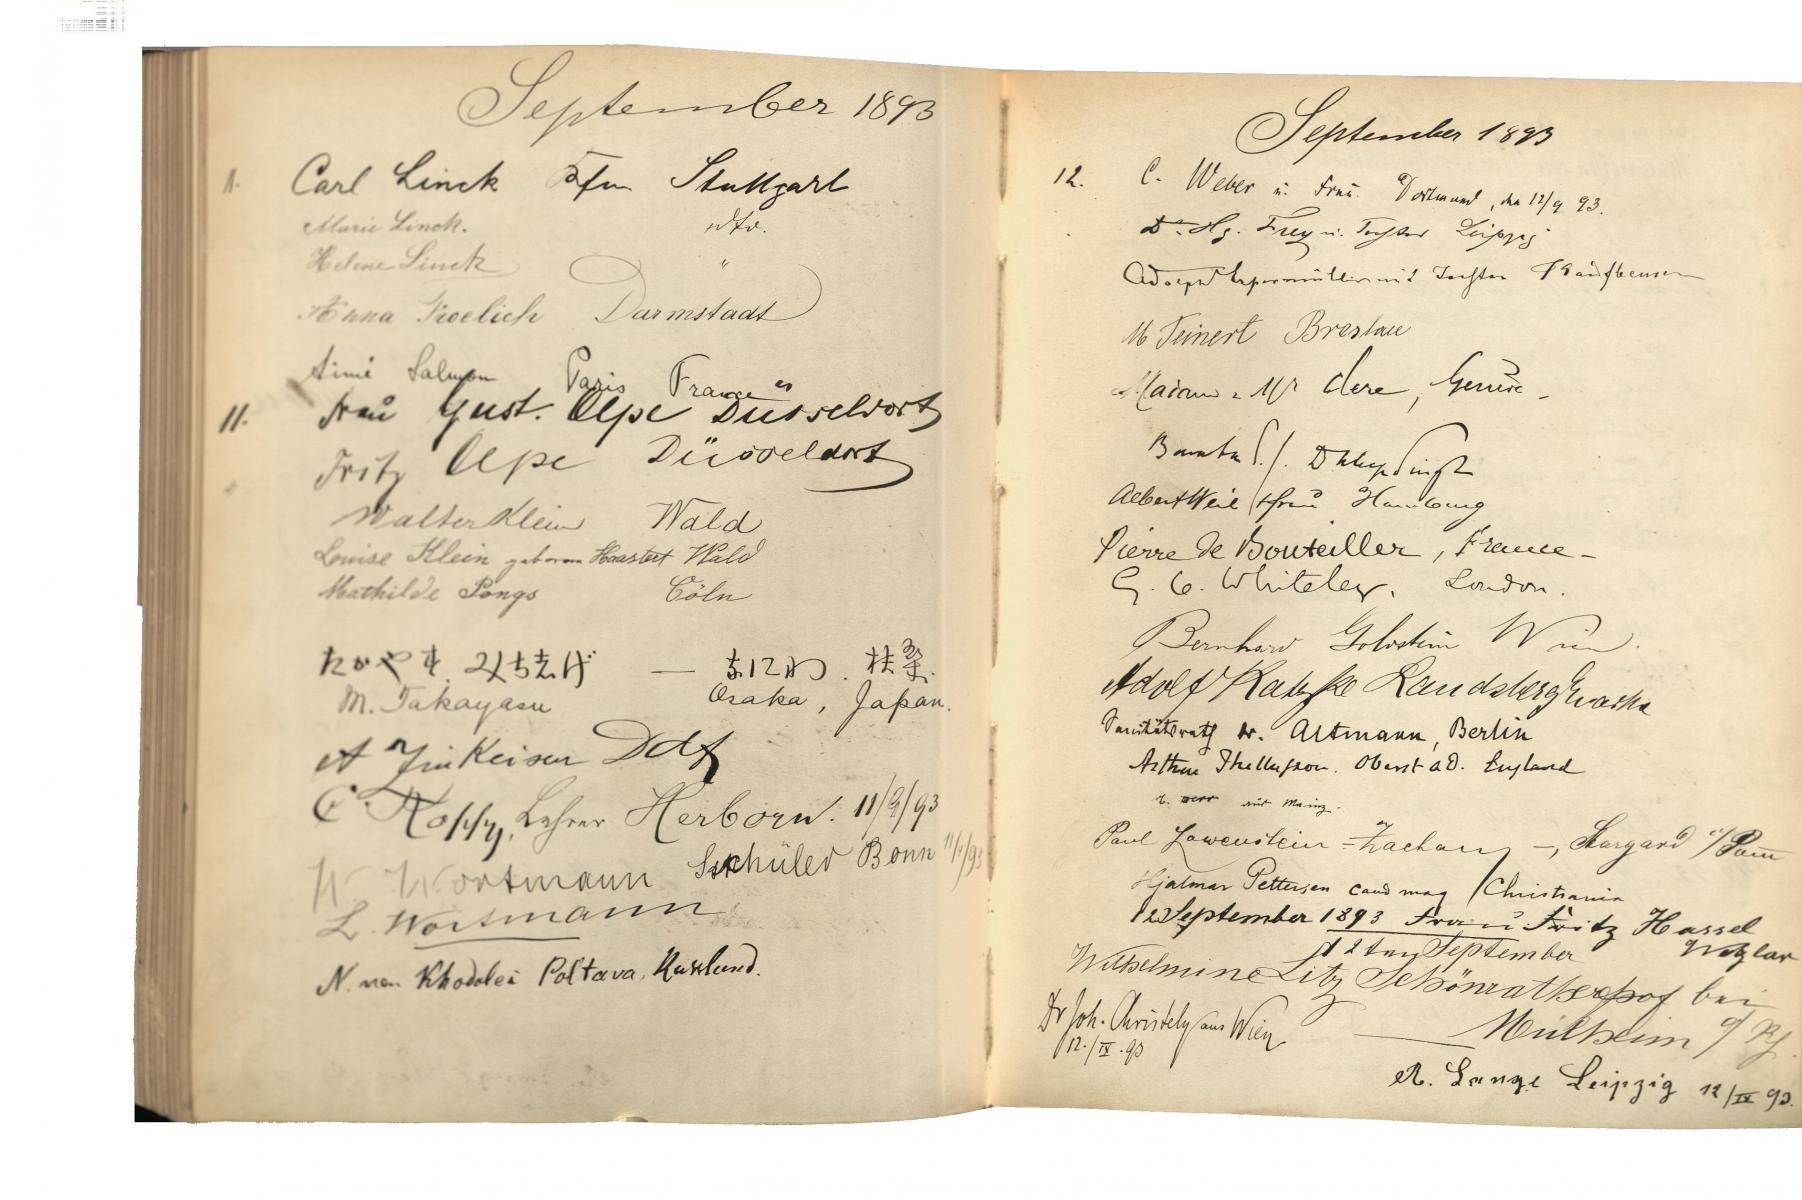 September 1893
1. Carl Linck Kfm Stuttgart
Marie Linck. dto.
Helene Linck "
Anna Froelich Darmstadt
Aimé Salmon Paris France
11. Frau Gust. Olpe Düsseldorf
Fritz Olpe Düsseldorf
Walter Klein Wald
Louise Klein geboren Haastert Wald
Mathilde Pongs Cöln
M. Takayasu Osaka, Japan.
A Ddf
C Kopp, Lehrer Herborn. 11/9/93
W Wortmann Schüler Bonn 11/9/93
L. Wortmann
N. von Poltava, Russland.
September 1893
12. C. Weber u. Frau. Dortmund, den 12/9 93.
Dr. Hg. Frey u. Tochter Leipzig
mit Tochter
M Teinert Breslau
Clere, Genève
Albert Weil & Frau Hamburg
Pierre de Bouteiller, France
G. C. Whiteley, London.
Bernhard Goldstein Wien.
Adolf Katzke Landsberg Warthe
Sanitätsrath Dr. Altmann, Berlin
Arthur Thellusson. Oberst a.D. England
aus Mainz.
Paul Lowenstein-Zachan, Stargard i/Pom
Hjalmar Pettersen cand mag / Christiania
12 September 1893 Frau u Fritz Hassel
Wetzlar
d 12ten September
Wilhelmine Litz Schönratherhof bei
Mülheim a/Rh.
Dr Joh. Christely aus Wien
12./IX.93
A. Lange Leipzig 12/IX 93.